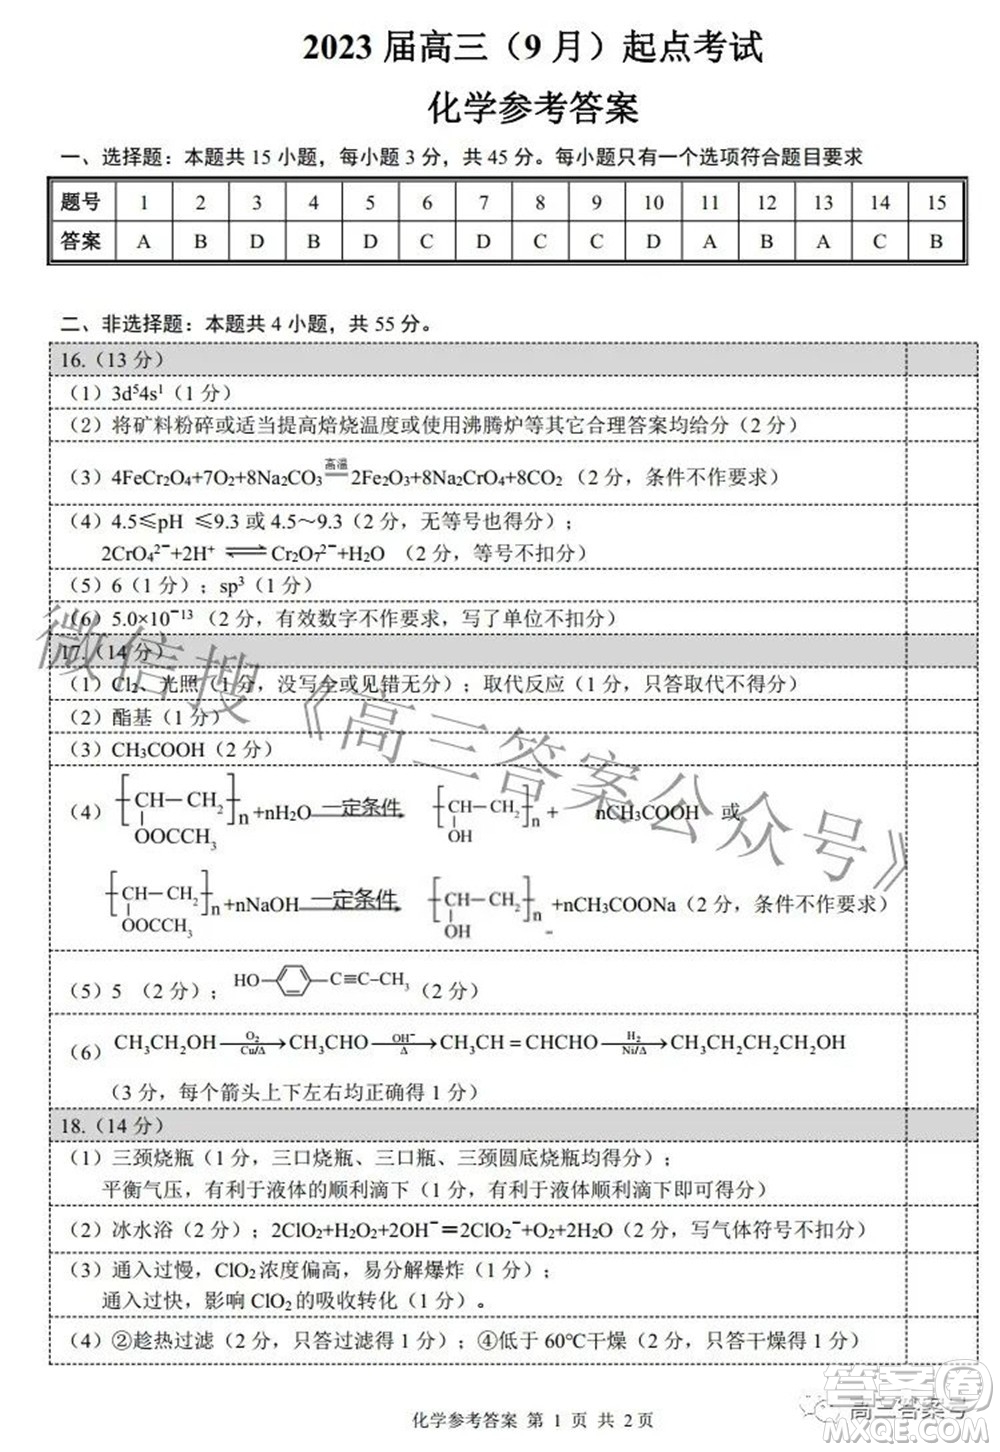 2023 届高三（9 月）起点考试
化学参考答案
一、选择题：本题共 15 小题，每小题 3 分，共 45 分。每小题只有一个选项符合题目要求
题号 1 2 3 4 5 6 7 8 9 10 11 12 13 14 15
答案 A B D B D C D C C D A B A C B
二、非选择题：本题共 4 小题，共 55 分。
16.（13 分）
（1）3d⁵4s¹（1 分）
（2）将矿料粉碎或适当提高焙烧温度或使用沸腾炉等其它合理答案均给分（2 分）
（3）4FeCr₂O₄+7O₂+8Na₂CO₃ 高温 2Fe₂O₃+8Na₂CrO₄+8CO₂（2 分，条件不作要求）
（4）4.5≤pH ≤9.3 或 4.5～9.3（2 分，无等号也得分）；
2CrO₄²⁻+2H⁺ ⇌ Cr₂O₇²⁻+H₂O （2 分，等号不扣分）
（5）6（1 分）；sp³（1 分）
（6）5.0×10⁻¹³（2 分，有效数字不作要求，写了单位不扣分）
17.（14 分）
（1）Cl₂、光照（1 分，没写全或见错无分）；取代反应（1 分，只答取代不得分）
（2）酯基（1 分）
（3）CH₃COOH（2 分）
（4）[CH－CH₂]n OOCCH₃ +nH₂O 一定条件 [CH－CH₂]n OH + nCH₃COOH 或
[CH－CH₂]n OOCCH₃ +nNaOH 一定条件 [CH－CH₂]n OH +nCH₃COONa（2 分，条件不作要求）
（5）5 （2 分）；HO C≡C－CH₃（2 分）
（6）CH₃CH₂OH O₂ Cu/Δ → CH₃CHO OH⁻ Δ → CH₃CH＝CHCHO H₂ Ni/Δ → CH₃CH₂CH₂CH₂OH
（3 分，每个箭头上下左右均正确得 1 分）
18.（14 分）
（1）三颈烧瓶（1 分，三口烧瓶、三口瓶、三颈圆底烧瓶均得分）；
平衡气压，有利于液体的顺利滴下（1 分，有利于液体顺利滴下即可得分）
（2）冰水浴（2 分）；2ClO₂+H₂O₂+2OH⁻＝2ClO₂⁻+O₂+2H₂O（2 分，写气体符号不扣分）
（3）通入过慢，ClO₂浓度偏高，易分解爆炸（1 分）；
通入过快，影响 ClO₂ 的吸收转化（1 分）。
（4）②趁热过滤（2 分，只答过滤得 1 分）；④低于 60℃干燥（2 分，只答干燥得 1 分）
化学参考答案 第 1 页 共 2 页
微信搜《高三答案公众号》
高三答案号
答案圈
MXQE.COM